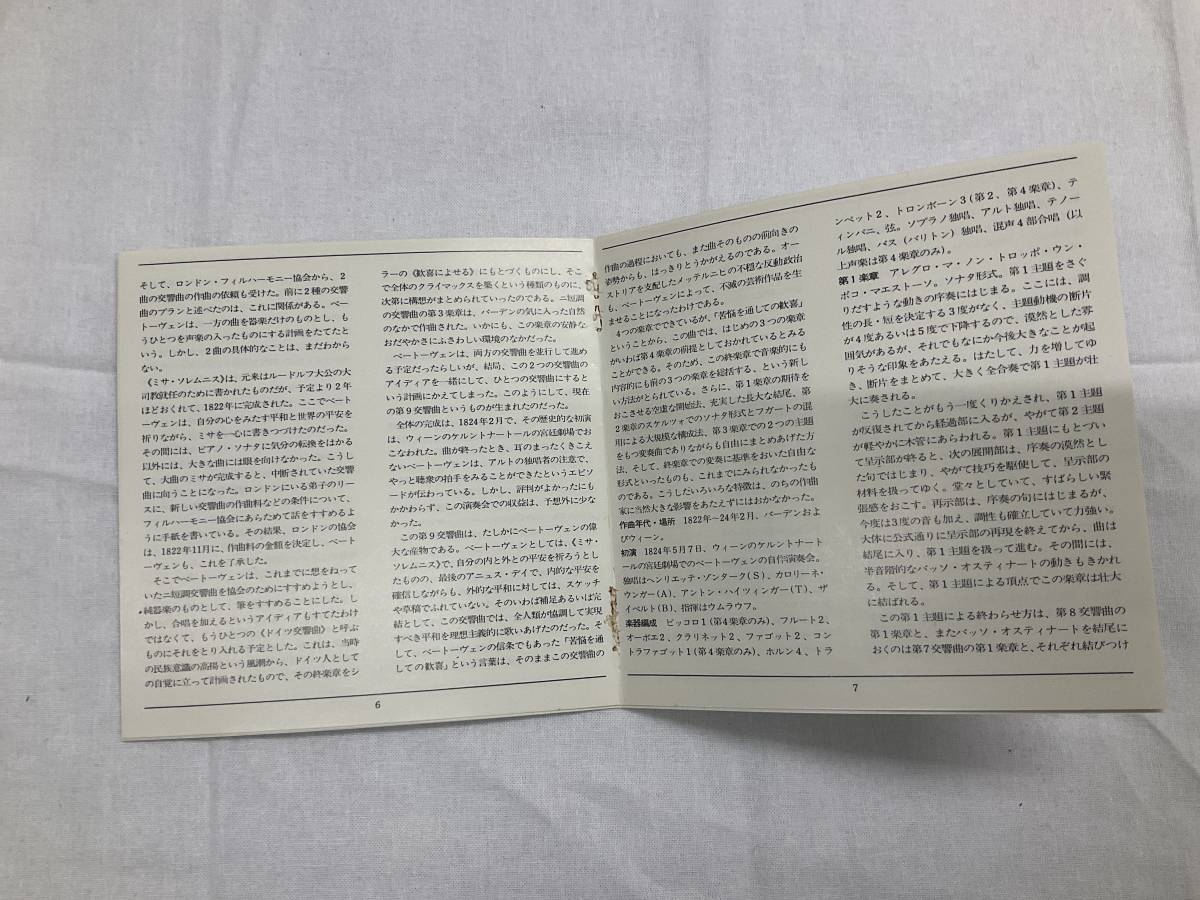 そして、ロンドン・フィルハーモニー協会から、2
曲の交響曲の作曲の依頼も受けた。前に2種の交響
曲のプランと述べたのは、これに関係がある。ベー
トーヴェンは、一方の曲を器楽だけのものとし、も
うひとつを声楽の入ったものにする計画をたてたと
いう。しかし、2曲の具体的なことは、まだわから
ない。
《ミサ・ソレムニス》は、元来はルードルフ大公の大
司教就任のために書かれたものだが、予定より2年
ほどおくれて、1822年に完成された。ここでベート
ーヴェンは、自分の心をみたす平和と世界の平安を
祈りながら、ミサを一心に書きつづけたのだった。
その間には、ピアノ・ソナタに気分の転換をはかる
以外には、大きな曲には眼を向けなかった。こうし
て、大曲のミサが完成すると、中断されていた交響
曲に向うことになった。ロンドンにいる弟子のリー
スに、新しい交響曲の作曲料などの条件について、
フィルハーモニー協会にあらためて話をすすめるよ
うに手紙を書いている。その結果、ロンドンの協会
は、1822年11月に、作曲料の金額を決定し、ベート
ーヴェンも、これを了承した。
そこでベートーヴェンは、これまでに想をねって
いたニ短調交響曲を協会のためにすすめようとし、
純器楽のものとして、筆をすすめることにした。し
かし、合唱を加えるというアイディアもすてたわけ
ではなくて、もうひとつの《ドイツ交響曲》と呼ぶ
ものにそれをとり入れる予定とした。これは、当時
の民族意識の高揚という風潮から、ドイツ人として
の自覚に立って計画されたもので、その終楽章をシ
ラーの《歓喜によせる》にもとづくものにし、そこ
で全体のクライマックスを築くという種類のものに、
次第に構想がまとめられていったのである。ニ短調
の交響曲の第3楽章は、バーデンの気に入った自然
のなかで作曲された。いかにも、この楽章の安静な
おだやかさにふさわしい環境のなかだった。
ベートーヴェンは、両方の交響曲を並行して進め
る予定だったらしいが、結局、この2つの交響曲の
アイディアを一緒にして、ひとつの交響曲にすると
いう計画にかえてしまった。このようにして、現在
の第9交響曲というものが生まれたのだった。
全体の完成は、1824年2月で、その歴史的な初演
は、ウィーンのケルントナートールの宮廷劇場でお
こなわれた。曲が終ったとき、耳のまったくきこえ
ないベートーヴェンは、アルトの独唱者の注意で、
やっと聴衆の拍手をみることができたというエピソ
ードが伝わっている。しかし、評判がよかったにも
かかわらず、この演奏会での収益は、予想外に少な
かった。
この第9交響曲は、たしかにベートーヴェンの偉
大な産物である。ベートーヴェンとしては、《ミサ・
ソレムニス》で、自分の内と外との平安を祈ろうとし
たものの、最後のアニュス・デイで、内的な平和を
確信しながらも、外的な平和に対しては、スケッチ
や草稿でふれていない。そのいわば補足あるいは完
結として、この交響曲では、全人類が協調して実現
すべき平和を理想主義的に歌いあげたのだった。そ
して、ベートーヴェンの信条でもあった「苦悩を通
しての歓喜」という言葉は、そのままこの交響曲の
6
作曲の過程においても、また曲そのものの前向きの
姿勢からも、はっきりとうかがえるのである。オー
ストリアを支配したメッテルニヒの不穏な反動政治
も、ベートーヴェンによって、不滅の芸術作品を生
ませることになったわけである。
4つの楽章でできているが、「苦悩を通しての歓喜」
ということから、この曲では、はじめの3つの楽章
がいわば第4楽章の前提としておかれているとみる
ことができる。そのため、この終楽章で音楽的にも
内容的にも前の3つの楽章を総括する、という新し
い方法がとられている。さらに、第1楽章の期待を
おこさせる空虚な開始法、充実した長大な結尾、第
2楽章のスケルツォでのソナタ形式とフガートの混
用による大規模な構成法、第3楽章での2つの主題
をもつ変奏曲でありながらも自由にまとめあげた方
法、そして、終楽章での変奏に基準をおいた自由な
形式といったものも、これまでにみられなかったも
のである。こうしたいろいろな特徴は、のちの作曲
家に当然大きな影響をあたえずにはおかなかった。
作曲年代・場所 1822年〜24年2月、バーデンおよ
びウィーン。
初演 1824年5月7日、ウィーンのケルントナート
ールの宮廷劇場でのベートーヴェンの自作演奏会。
独唱はヘンリエッテ・ゾンターク(S)、カロリーネ・
ウンガー(A)、アントン・ハイツィンガー(T)、ザ
イペルト(B)、指揮はウムラウフ。
楽器編成 ピッコロ1(第4楽章のみ)、フルート2、
オーボエ2、クラリネット2、ファゴット2、コン
トラファゴット1(第4楽章のみ)、ホルン4、トラ
ンペット2、トロンボーン3(第2、第4楽章)、テ
ィンパニ、弦。ソプラノ独唱、アルト独唱、テノー
ル独唱、バス(バリトン)独唱、混声4部合唱(以
上声楽は第4楽章のみ)。
第1楽章 アレグロ・マ・ノン・トロッポ・ウン・
ポコ・マエストーソ。ソナタ形式。第1主題をさぐ
りだすような動きの序奏にはじまる。ここには、調
性の長・短を決定する3度がなく、主題動機の断片
が4度あるいは5度で下降するので、漠然とした雰
囲気があるが、それでもなにか今後大きなことが起
りそうな印象をあたえる。はたして、力を増してゆ
き、断片をまとめて、大きく全合奏で第1主題が壮
大に奏される。
こうしたことがもう一度くりかえされ、第1主題
が反復されてから経過部に入るが、やがて第2主題
が軽やかに木管にあらわれる。第1主題にもとづい
て呈示部が終ると、次の展開部は、序奏の漠然とし
た句ではじまり、やがて技巧を駆使して、呈示部の
材料を扱ってゆく。堂々としていて、すばらしい緊
張感をおこす。再示部は、序奏の句にはじまるが、
今度は3度の音も加え、調性も確立していて力強い。
大体に公式通りに呈示部の再現を終えてから、曲は
結尾に入り、第1主題を扱って進む。その間には、
半音階的なバッソ・オスティナートの動きもきかれ
る。そして、第1主題による頂点でこの楽章は壮大
に結ばれる。
この第1主題による終わらせ方は、第8交響曲の
第1楽章と、またバッソ・オスティナートを結尾に
おくのは第7交響曲の第1楽章と、それぞれ結びつけ
7